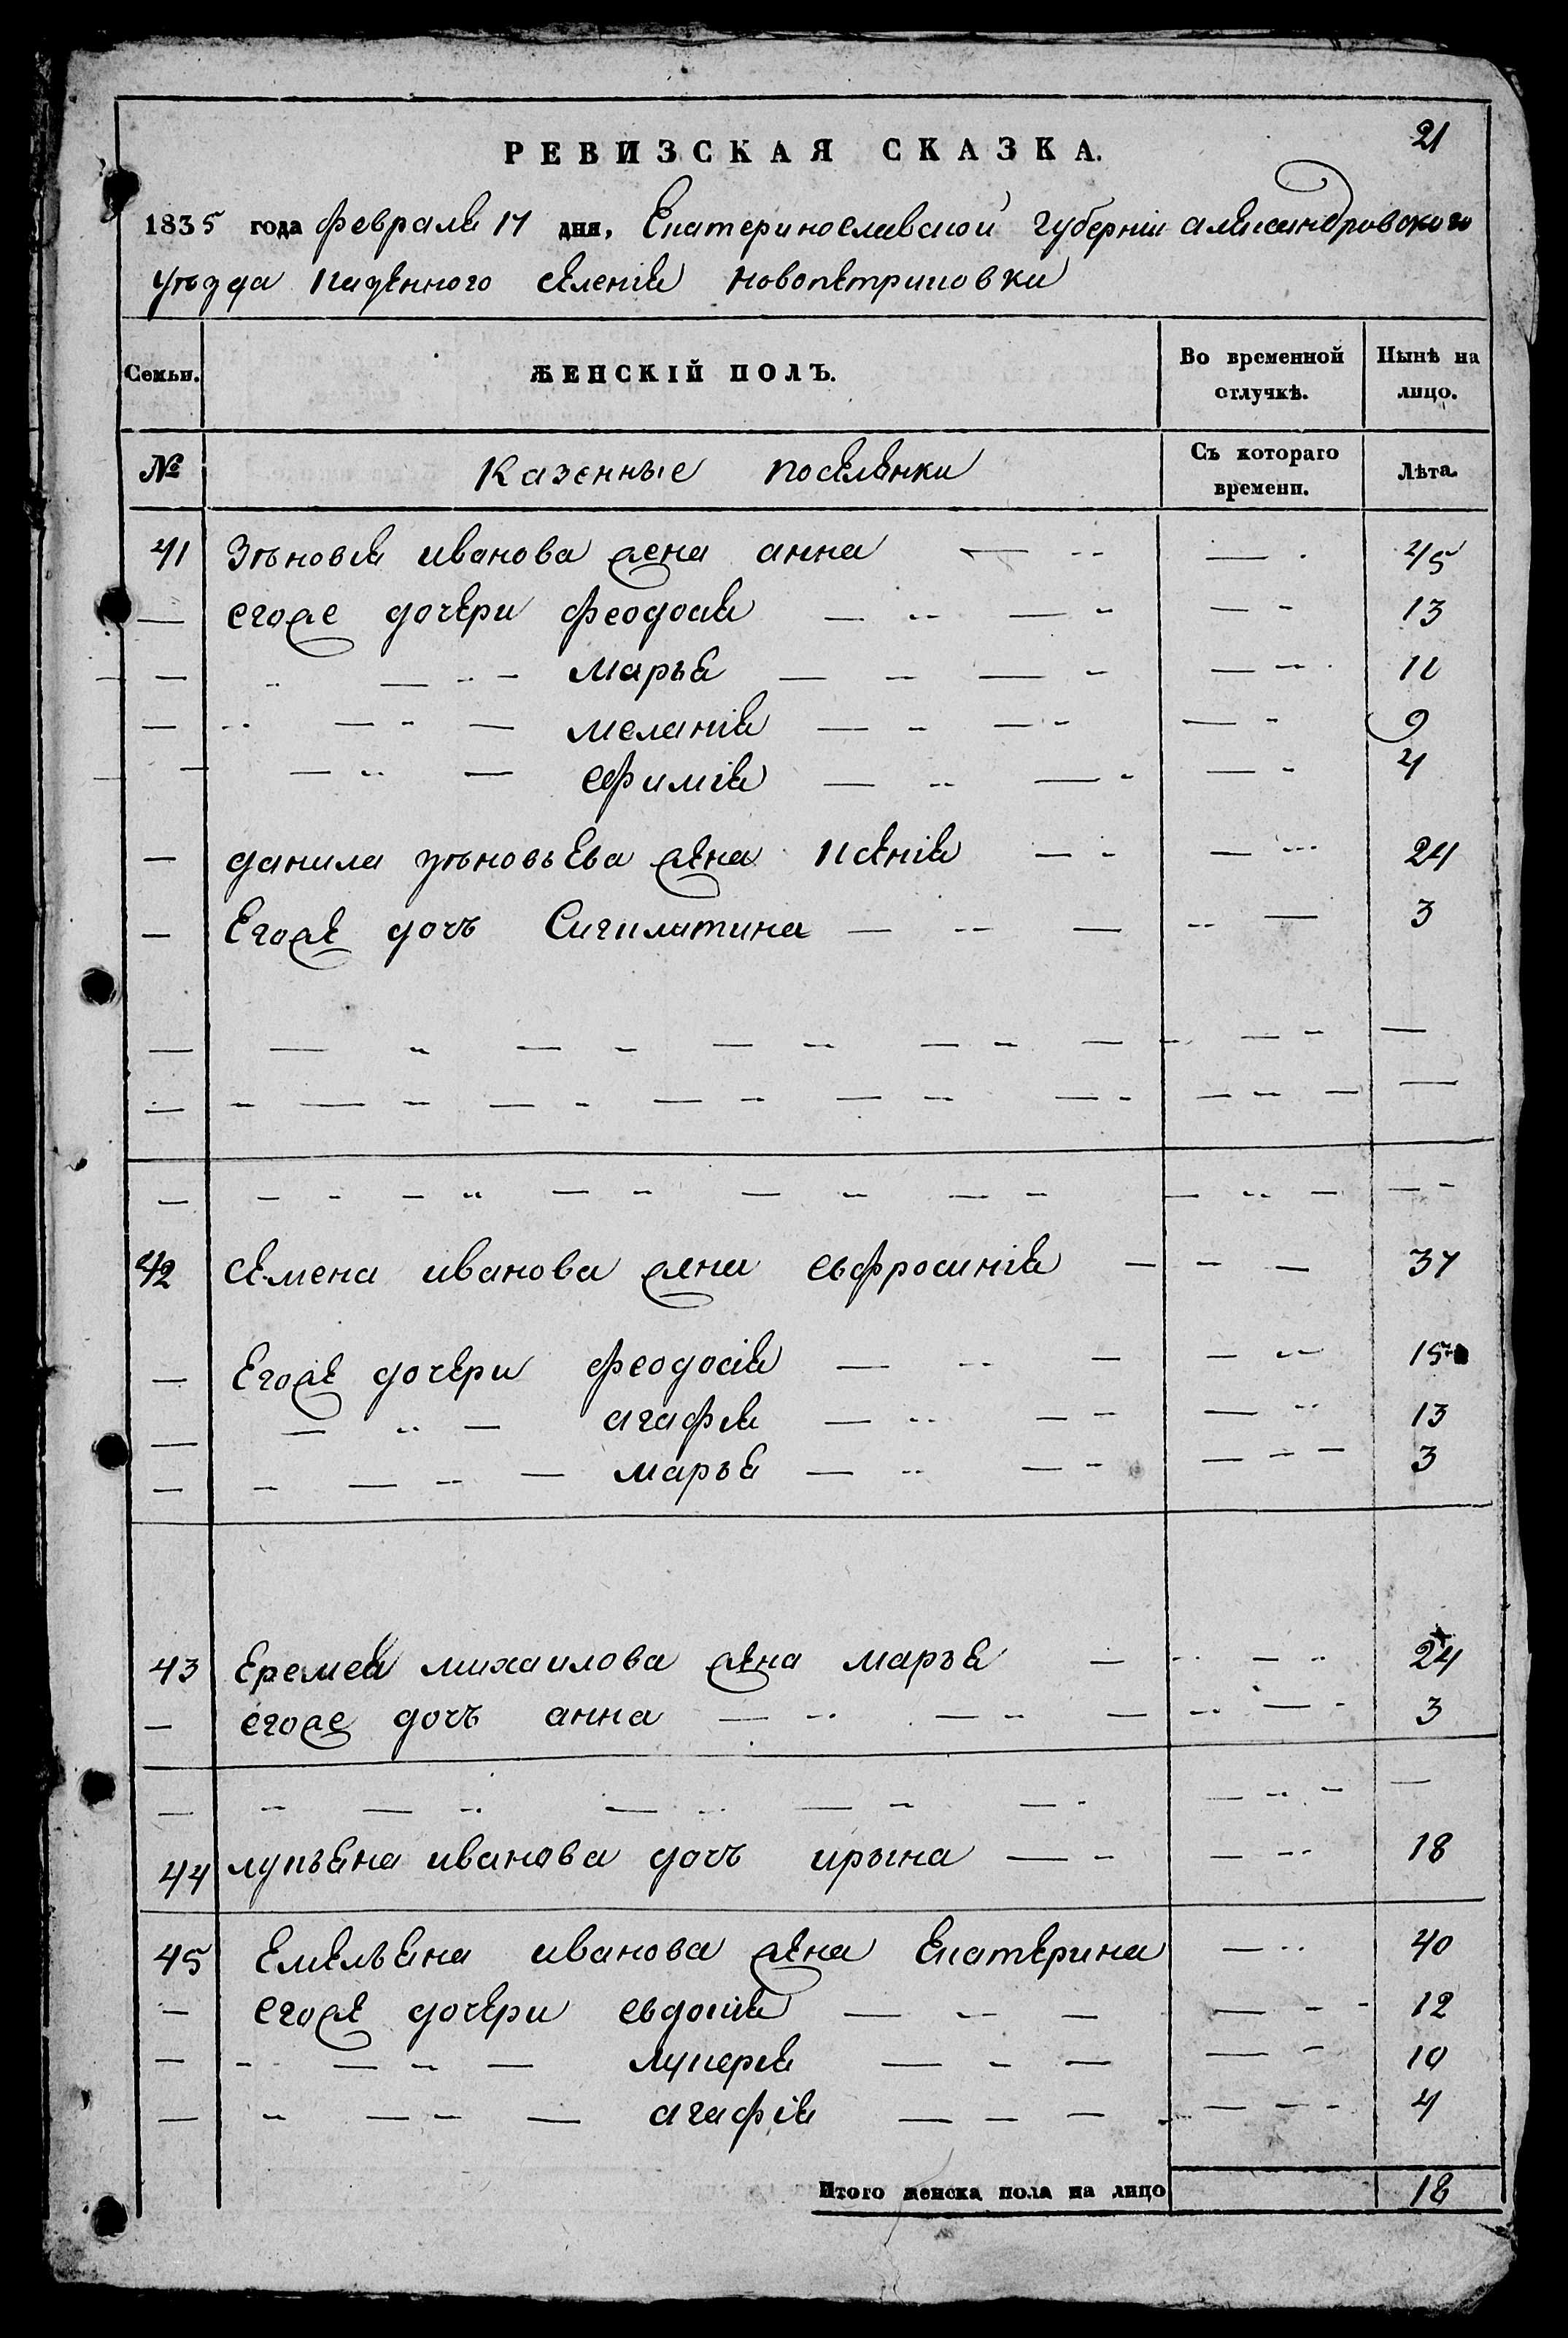 21
РЕВИЗСКАЯ СКАЗКА.
1835 года февраля 17 дня, Екатеринославской губерніи александровского
уѣзда казенного селенія новопетриковки
Семьи. ЖЕНСКІЙ ПОЛЪ. Во временной отлучкѣ. Нынѣ на лицо.
№ Казенные поселянки Съ котораго времени. Лѣта.
41 Зѣновія иванова жена анна — -- — . 45
— егоже дочери феодосія — -- — - — - 13
— -- — -- - марья — -- — - — -- 11
— -- — - — меланія — - — - — - 9
— — -- — ефимія — -- — - — - 4
— данила зѣновьева жена ксенія — - — --- 24
— Егоже дочъ Сигилитина — -- — -- — 3
42 семена иванова жена евфросинія — - — 37
— Егоже дочери феодосія — -- — — -- 15
— — -- — агафія — -- — - — -- 13
— - — -- — марья — -- — - — - - 3
43 Еремея михаилова жена марья — -- — -- 24
— егоже дочъ анна — -- — -- — -- — - 3
44 лукьяна иванова дочъ ирына — - — -- 18
45 Емельяна иванова жена Екатерина — -- 40
— егоже дочери евдокія — -- — — - - 12
— - — -- — лукерія — - — — - 10
— - — - — агафія — - — — - - 4
Итого женска пола на лицо 18